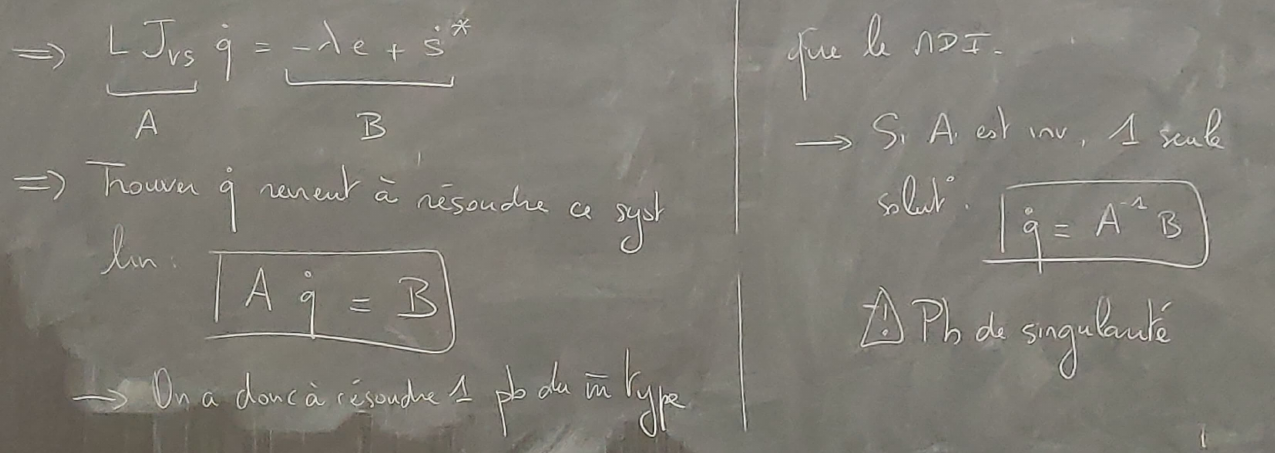 => L J_vs q̇ = -λe + ṡ*
A B
=> Trouver q̇ revient à résoudre ce syst
lin : A q̇ = B
→ On a donc à résoudre 1 pb du m̄ type
que le MDI.
→ Si A est inv, 1 seule
solut°. q̇ = A⁻¹ B
⚠ Pb de singularité